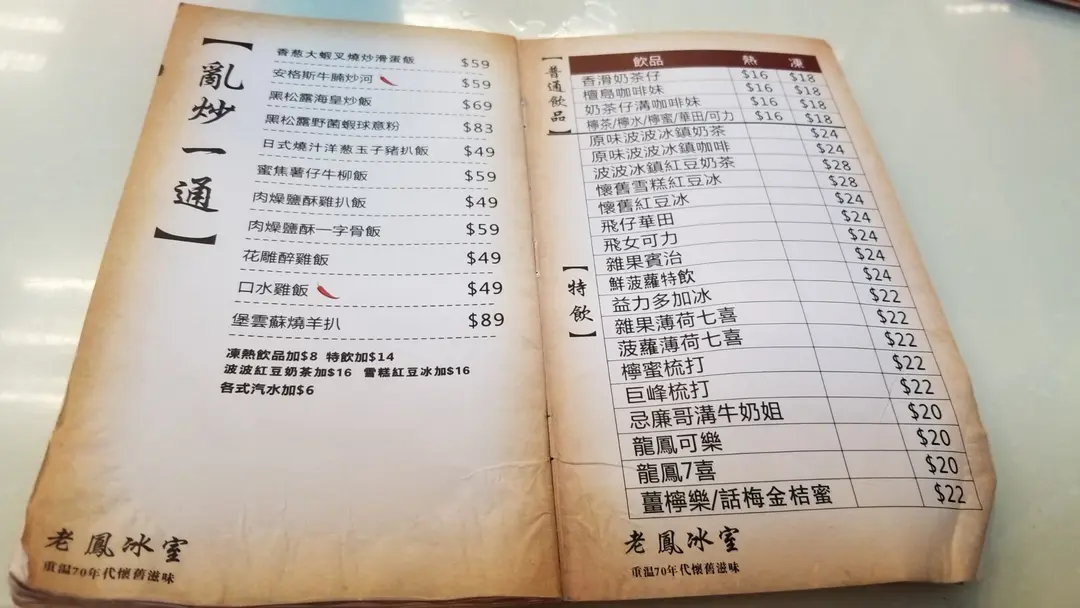 【亂炒一通】
香葱大蝦叉燒炒滑蛋飯 $59
安格斯牛腩炒河 $59
黑松露海皇炒飯 $69
黑松露野菌蝦球意粉 $83
日式燒汁洋葱玉子豬扒飯 $49
蜜焦薯仔牛柳飯 $59
肉燥鹽酥雞扒飯 $49
肉燥鹽酥一字骨飯 $59
花雕醉雞飯 $49
口水雞飯 $49
堡雲蘇燒羊扒 $89
凍熱飲品加$8 特飲加$14
波波紅豆奶茶加$16 雪糕紅豆冰加$16
各式汽水加$6
老鳳冰室
重溫70年代懷舊滋味
【普通飲品】
飲品 熱 凍
香滑奶茶仔 $16 $18
檀島咖啡妹 $16 $18
奶茶仔溝咖啡妹 $16 $18
檸茶/檸水/檸蜜/華田/可力 $16 $18
【特飲】
原味波波冰鎮奶茶 $24
原味波波冰鎮咖啡 $24
波波冰鎮紅豆奶茶 $28
懷舊雪糕紅豆冰 $28
懷舊紅豆冰 $24
飛仔華田 $24
飛女可力 $24
雜果賓治 $24
鮮菠蘿特飲 $24
益力多加冰 $22
雜果薄荷七喜 $22
菠蘿薄荷七喜 $22
檸蜜梳打 $22
巨峰梳打 $22
忌廉哥溝牛奶姐 $20
龍鳳可樂 $20
龍鳳7喜 $20
薑檸樂/話梅金桔蜜 $22
老鳳冰室
重溫70年代懷舊滋味